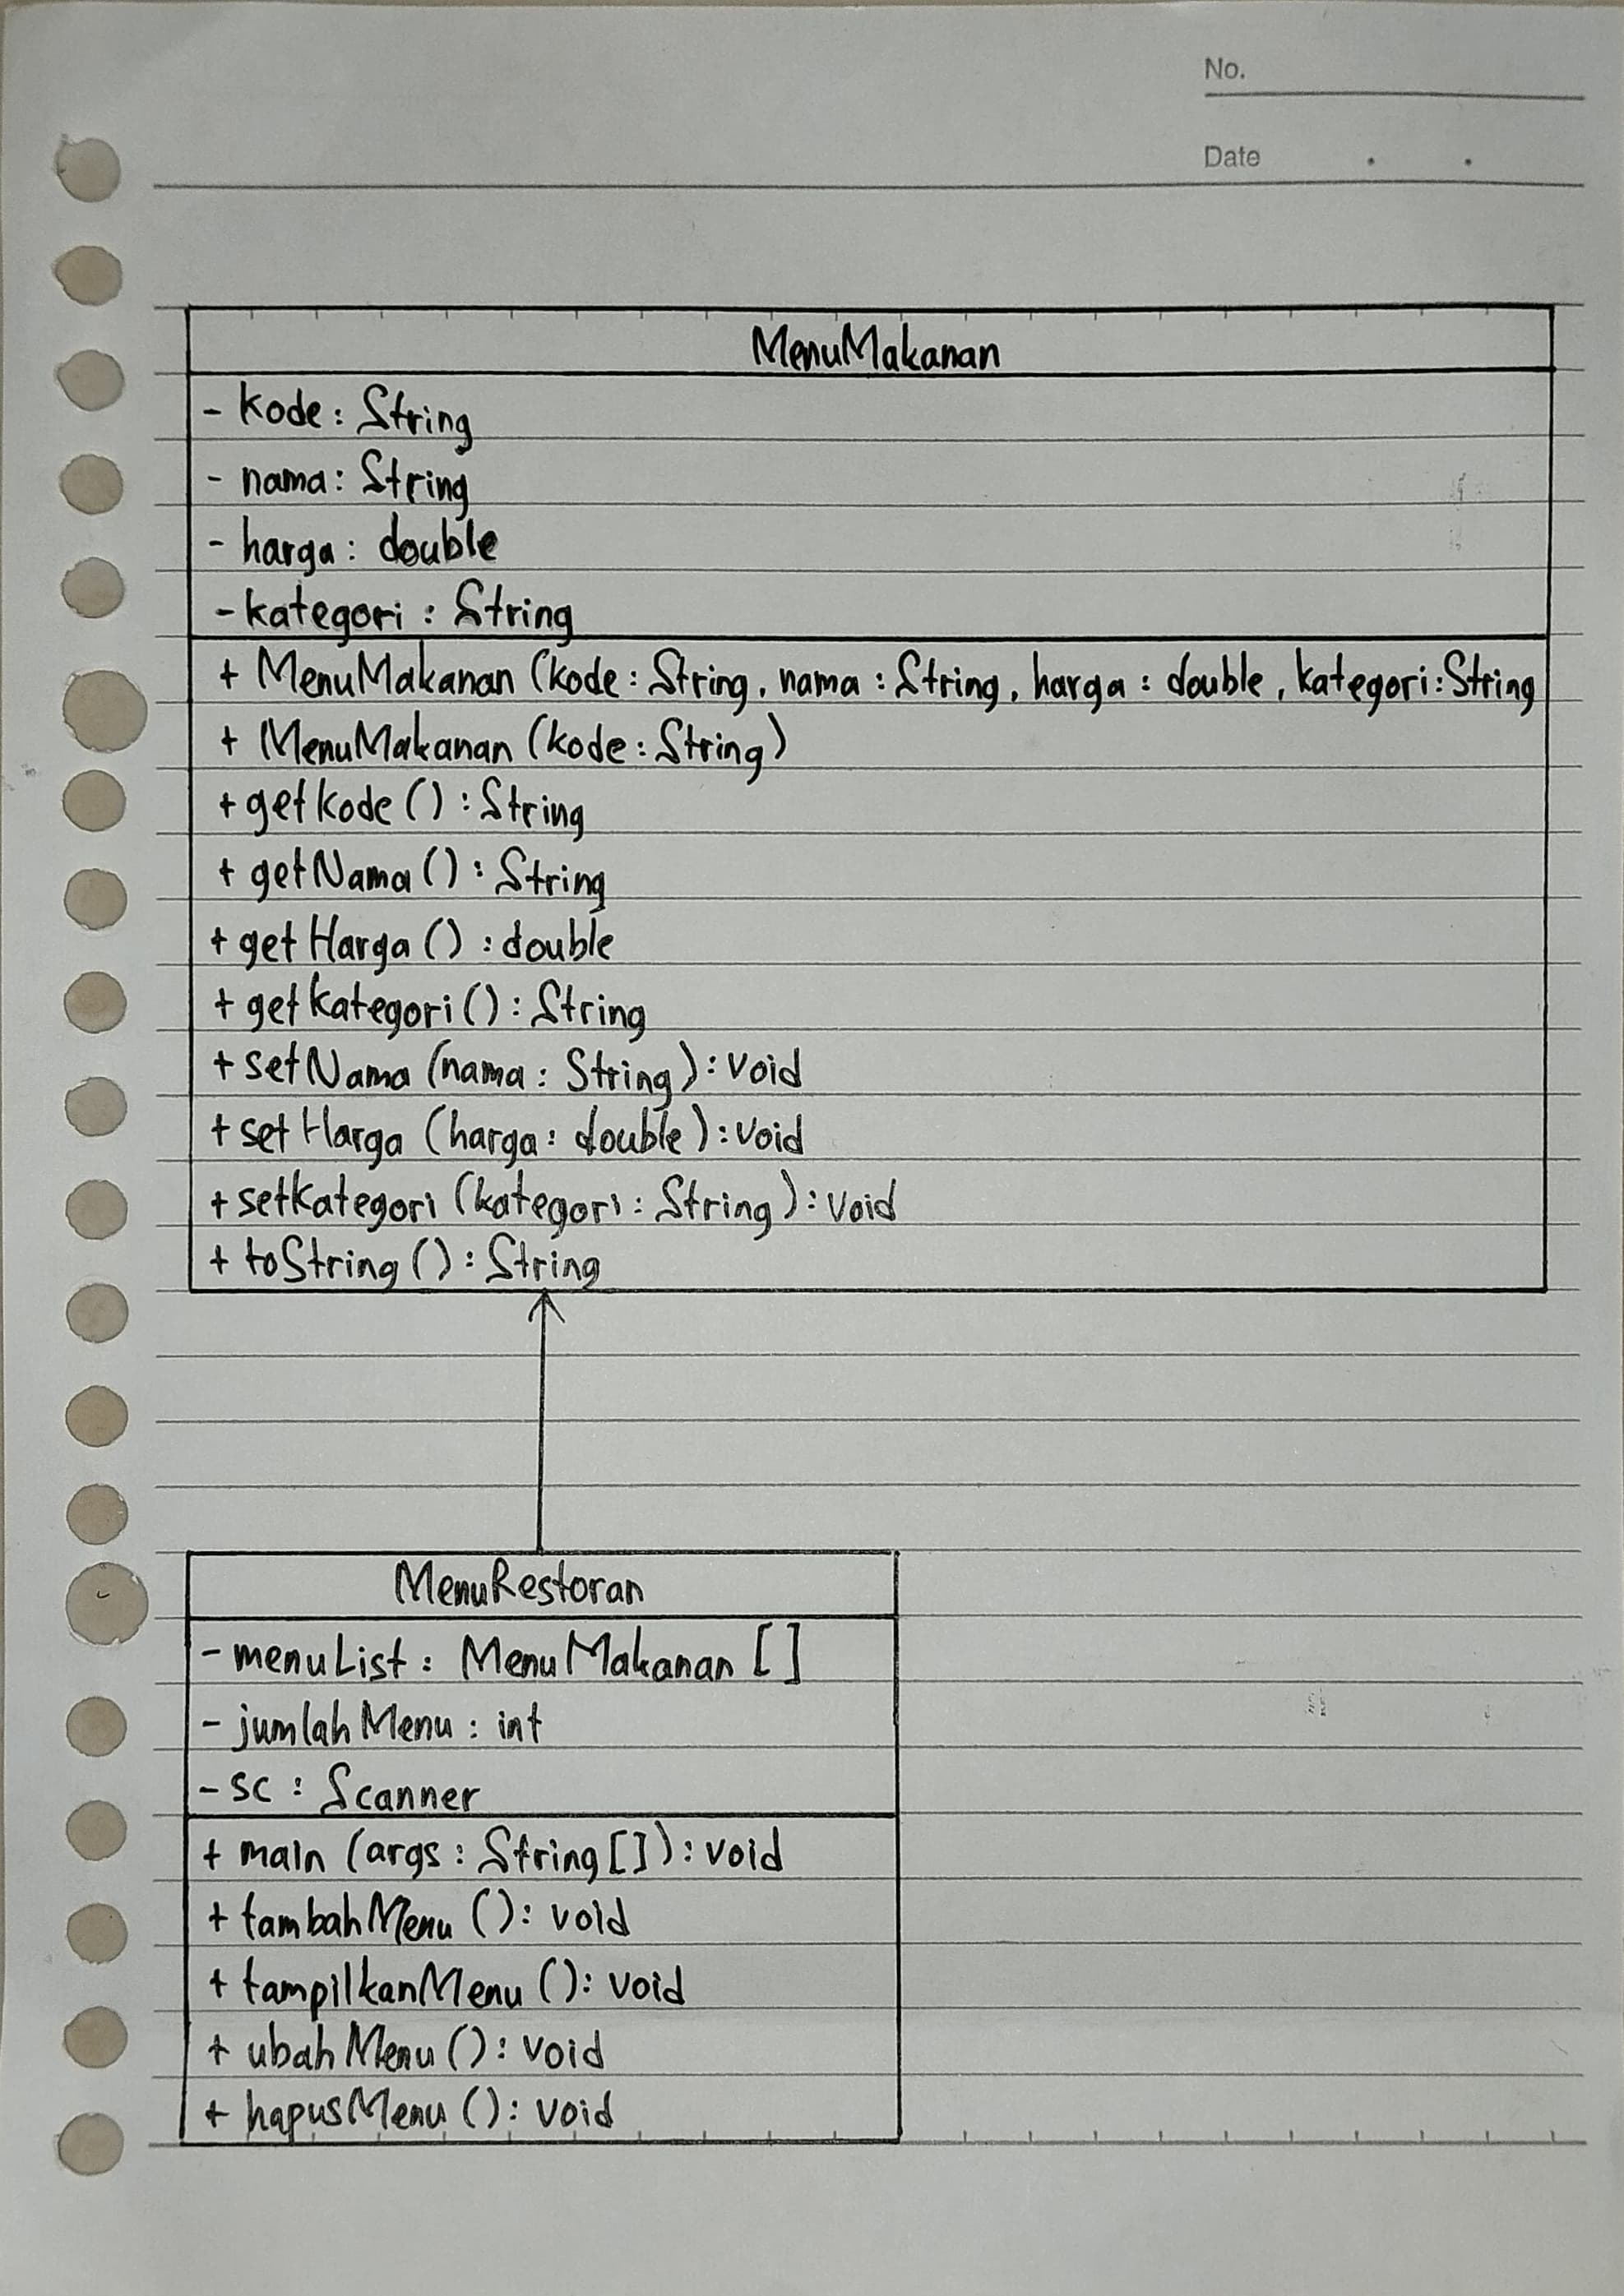 No.
Date
MenuMakanan
- kode : String
- nama : String
- harga : double
- kategori : String
+ MenuMakanan (kode : String, nama : String, harga : double, kategori : String
+ MenuMakanan (kode : String)
+ getKode () : String
+ getNama () : String
+ getHarga () : double
+ getKategori () : String
+ setNama (nama : String) : void
+ setHarga (harga : double) : void
+ setKategori (kategori : String) : void
+ toString () : String
MenuRestoran
- menuList : MenuMakanan []
- jumlahMenu : int
- sc : Scanner
+ main (args : String []) : void
+ tambahMenu () : void
+ tampilkanMenu () : void
+ ubahMenu () : void
+ hapusMenu () : void